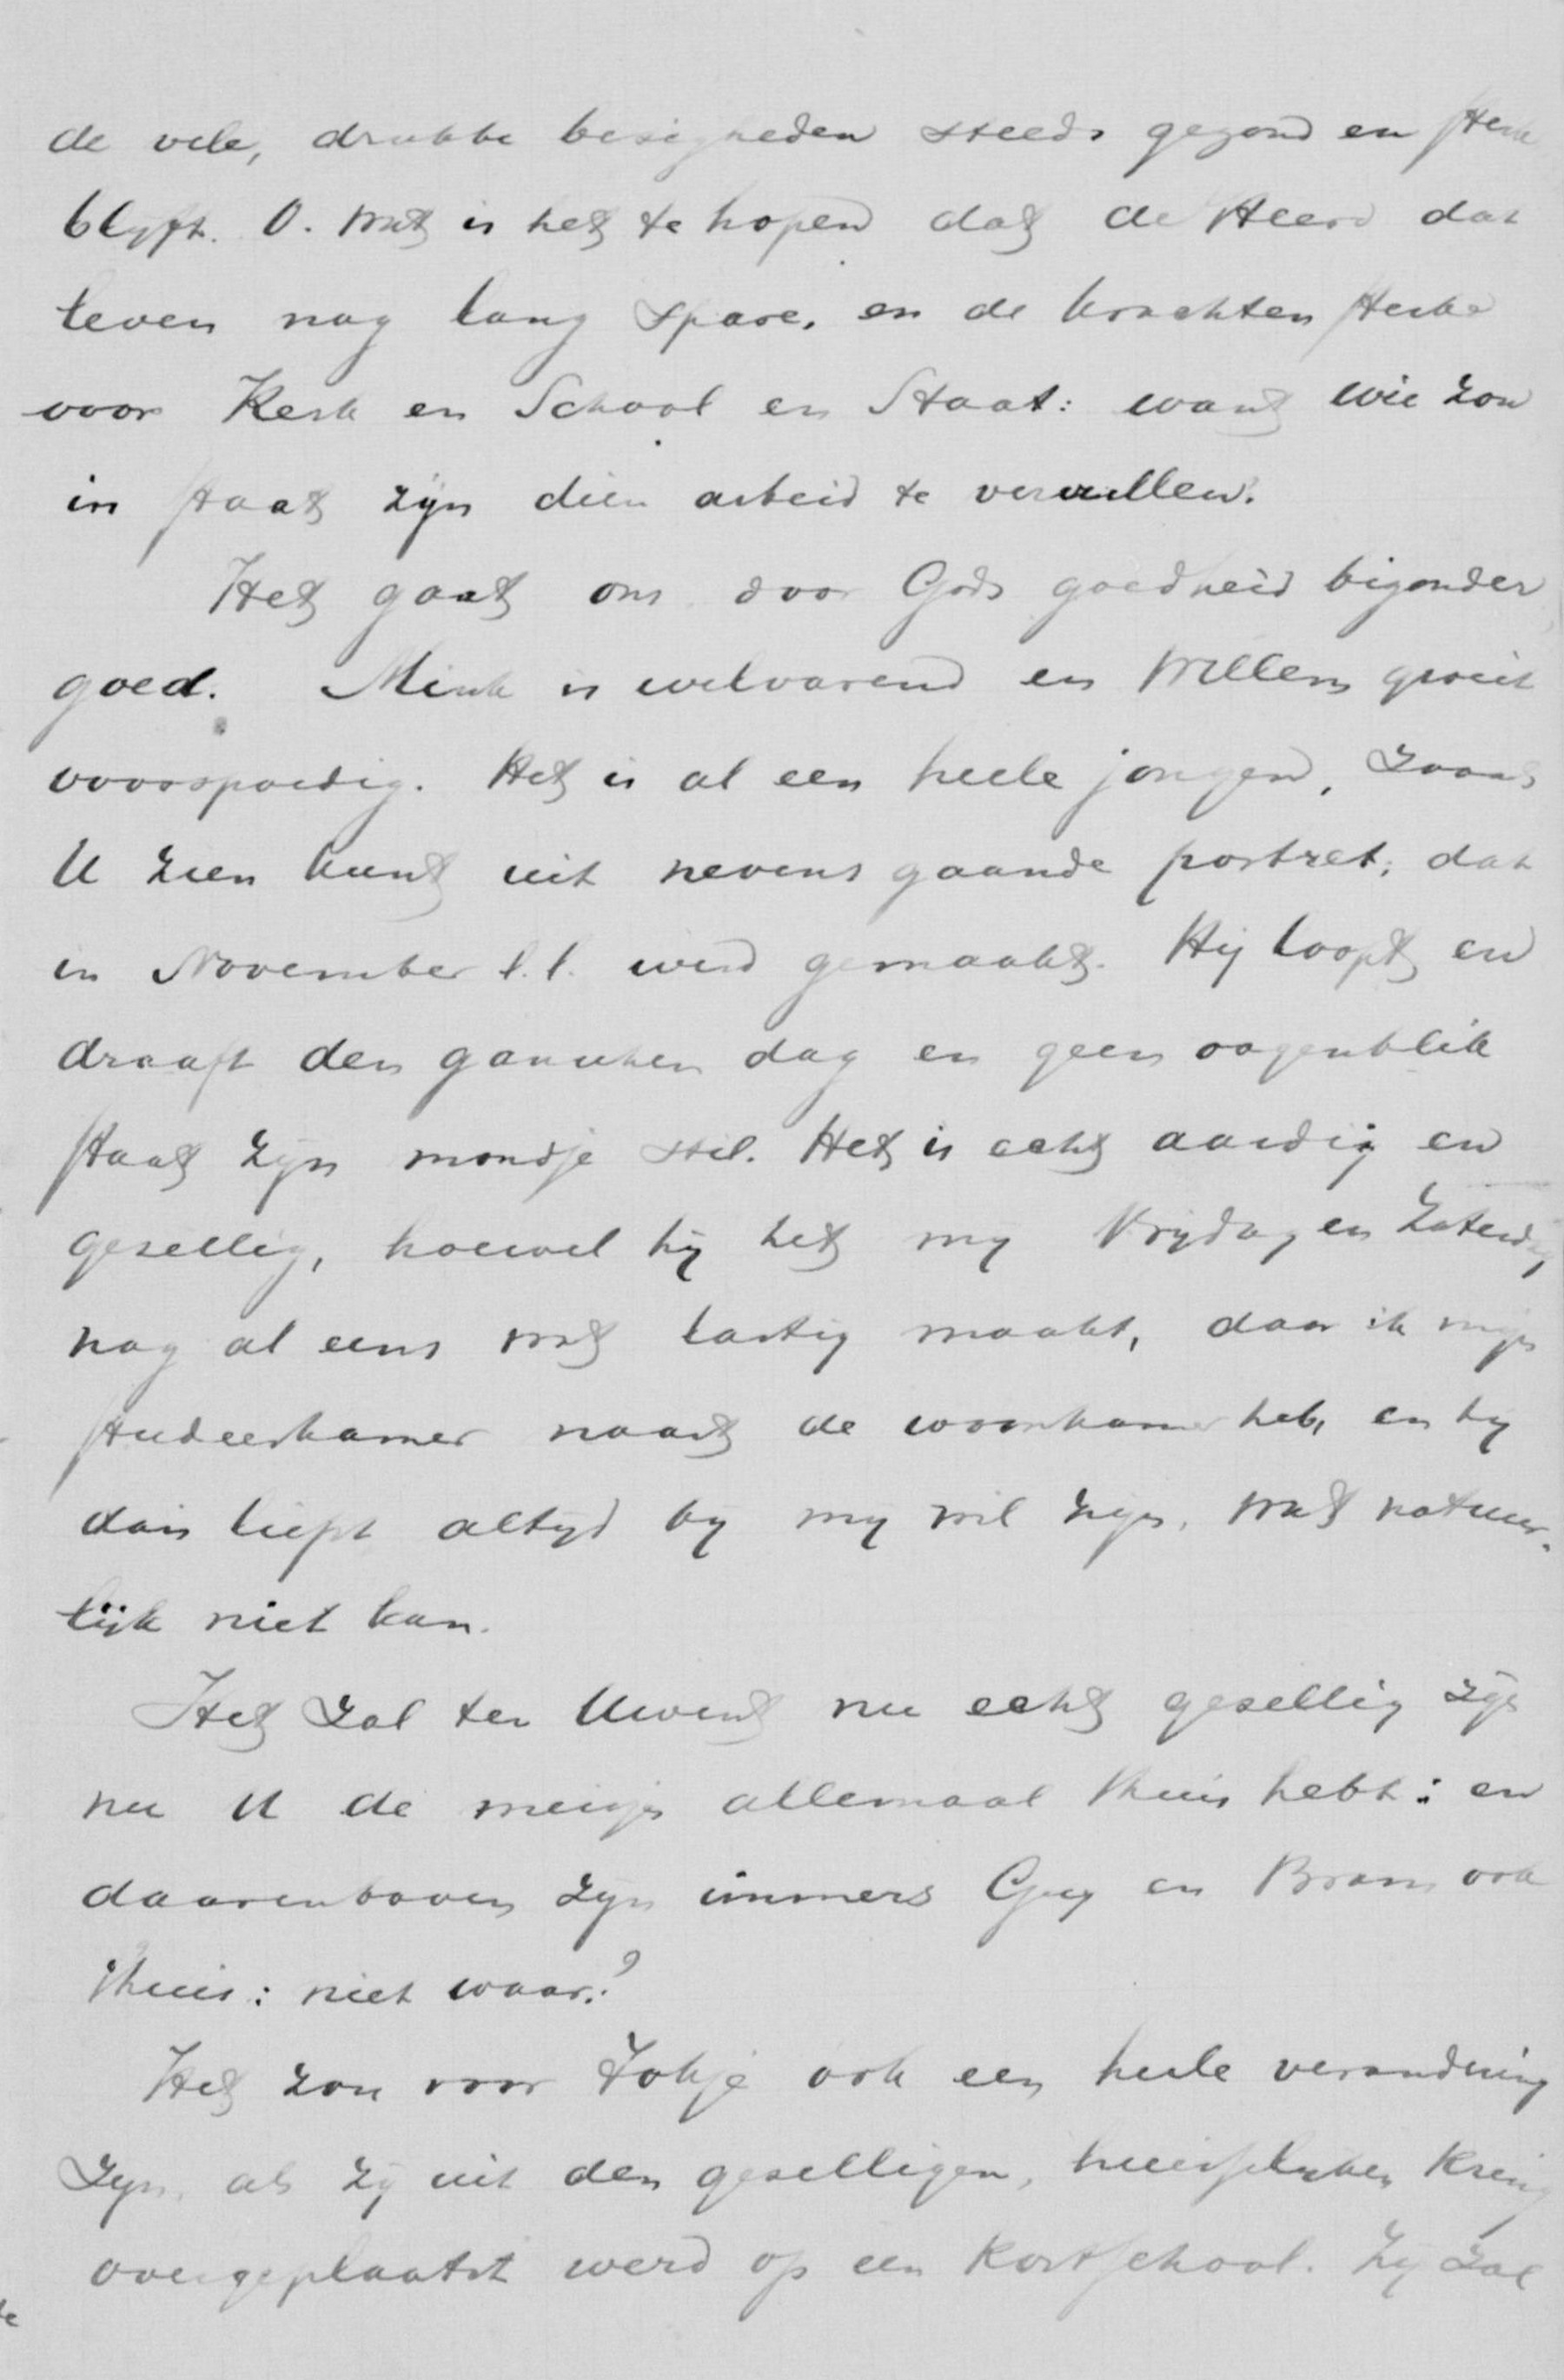 de vele, drukke bezigheden steeds gezond en sterk
blyft. O. wat is het te hopen dat de Heere dat
leven nog lang spare, en de krachten sterke
voor Kerk en School en Staat: want wie zou
in staat zijn dien arbeid te vervullen.
Het gaat ons door Gods goedheid bizonder
goed. Mink is welvarend en Willem groeit
voorspoedig. Het is al een heele jongen, zooals
U zien kunt uit nevens gaande portret, dat
in November l.l. werd gemaakt. Hij loopt en
draaft den ganschen dag en geen oogenblik
staat zijn mondje stil. Het is echt aardig en
gezellig, hoewel hij het my Vrijdag en Zaterdag
nog al eens wat lastig maakt, daar ik mijn
studeerkamer naast de woonkamer heb, en hy
dan liefst altyd by my wil zijn, wat natuur-
lijk niet kan.
Het zal ten Uwent nu echt gezellig zijn
nu U de meisjes allemaal thuis hebt: en
daarenboven zyn immers Guy en Bram ook
thuis: niet waar?
Het zou voor Johje ook een heele verandering
zyn, als zij uit den gezelligen, huiselyken kring
overgeplaatst werd op een Kostschool. Zij zal